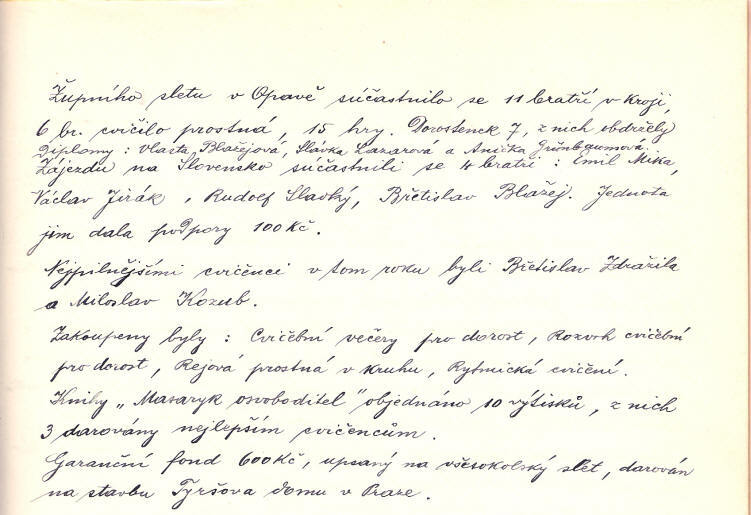 Župního sletu v Opavě súčastnilo se 11 bratří v kroji,
6 br. cvičilo prostná, 15 hry. Dorostenek 7, z nich obdržely
Diplomy: Vlasta Blažejová, Slávka Lazarová a Anička Grünbaumová.
Zájezdu na Slovensko súčastnili se 4 bratři: Emil Mika,
Václav Jirák, Rudolf Slavký, Břetislav Blažej. Jednota
jim dala podpory 100 Kč.
Nejpilnějšími cvičenci v tom roku byli Břetislav Zdražila
a Miloslav Kozub.
Zakoupeny byly: Cvičební večery pro dorost, Rozvrh cvičební
pro dorost, Rejová prostná v kruhu, Rytmická cvičení.
Knihy „Masaryk osvoboditel" objednáno 10 výtisků, z nich
3 darovány nejlepším cvičencům.
Garanční fond 600 Kč, upsaný na všesokolský slet, darován
na stavbu Tyršova domu v Praze.